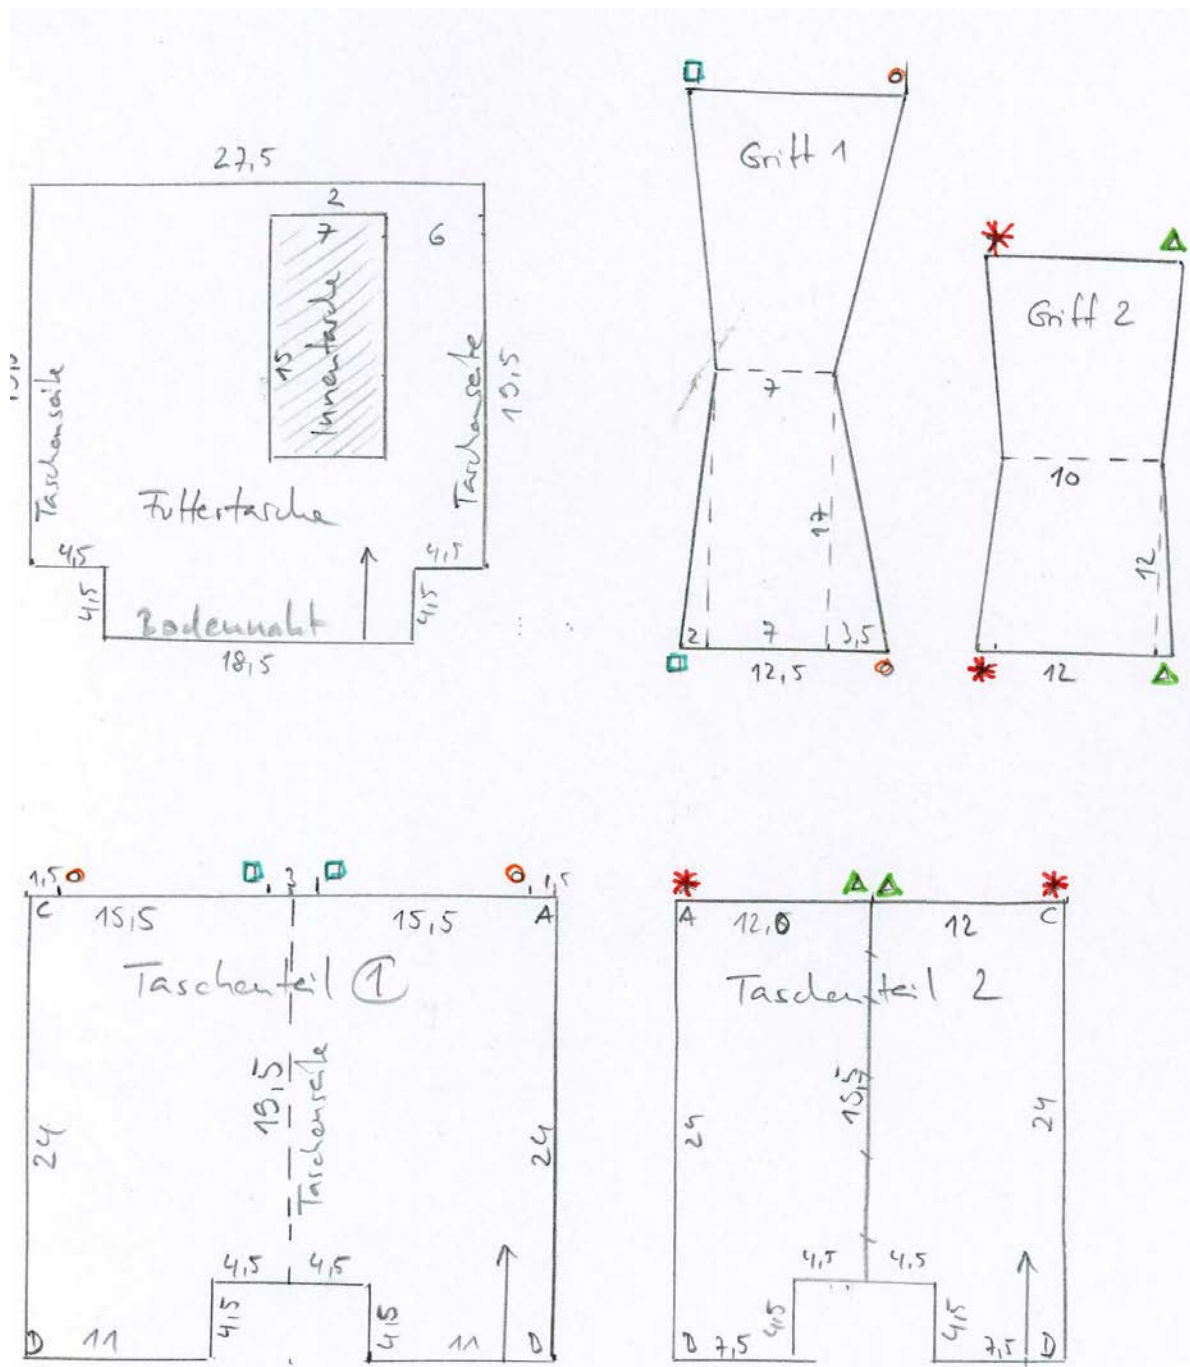 27,5
2
7
6
15
Innentasche
Taschenseite
Taschenseite
19,5
Futtertasche
4,5
4,5
4,5
4,5
Bodennaht
18,5
Griff 1
7
17
2
7
3,5
12,5
Griff 2
10
12
12
1,5
3
1,5
C
15,5
15,5
A
Taschenteil 1
19,5
Taschenseite
24
24
4,5
4,5
4,5
4,5
D
11
11
D
A
12,0
12
C
Taschenteil 2
19,5
24
24
4,5
4,5
4,5
4,5
D
7,5
7,5
D